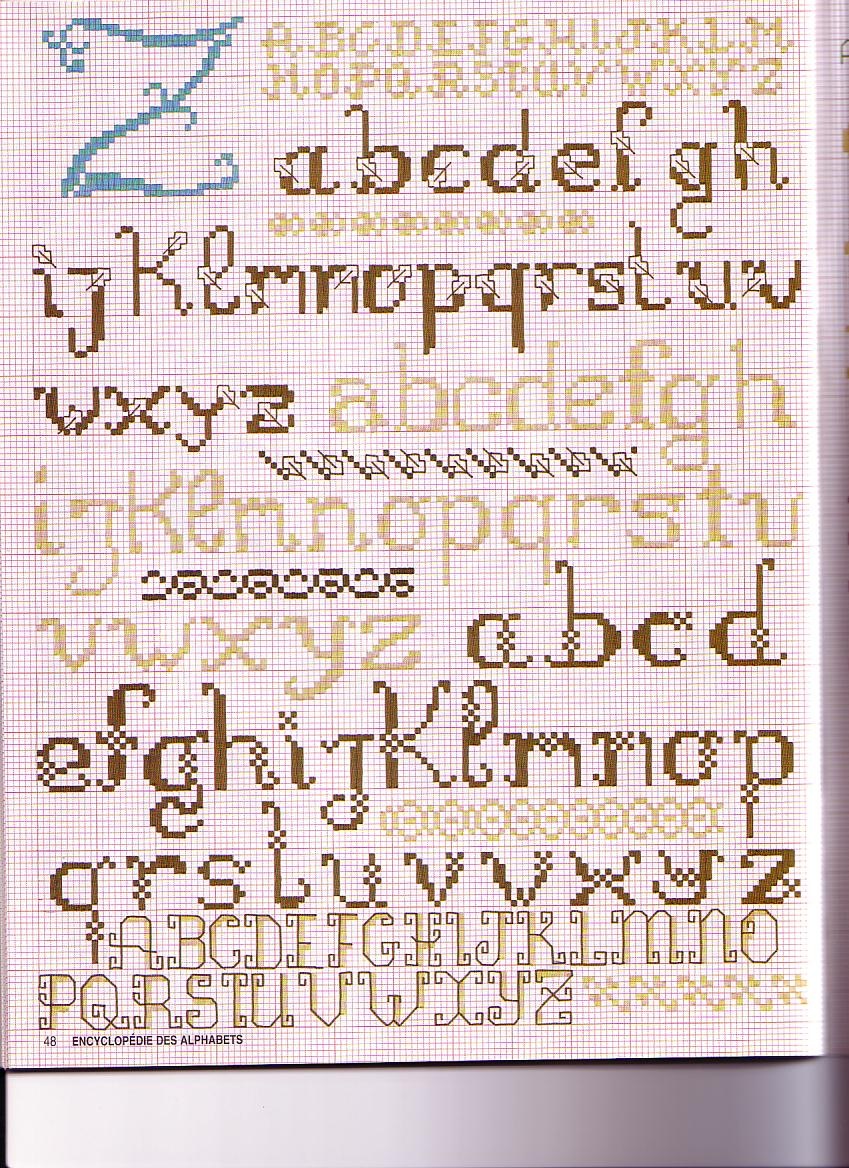 Z
A B C D E F G H I J K L M
N O P Q R S T U V W X Y Z
a b c d e f g h
i j k l m n o p q r s t u v
w x y z
a b c d e f g h
i j k l m n o p q r s t u
v w x y z
a b c d
e f g h i j k l m n o p
q r s t u v w x y z
A B C D E F G H I J K L M N O
P Q R S T U V W X Y Z
48 ENCYCLOPÉDIE DES ALPHABETS